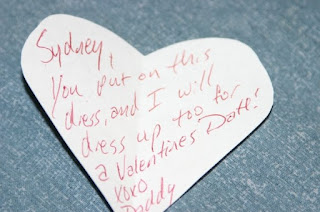 Sydney,
You put on this
dress, and I will
dress up too for
a Valentines Date!
XOXO
Daddy